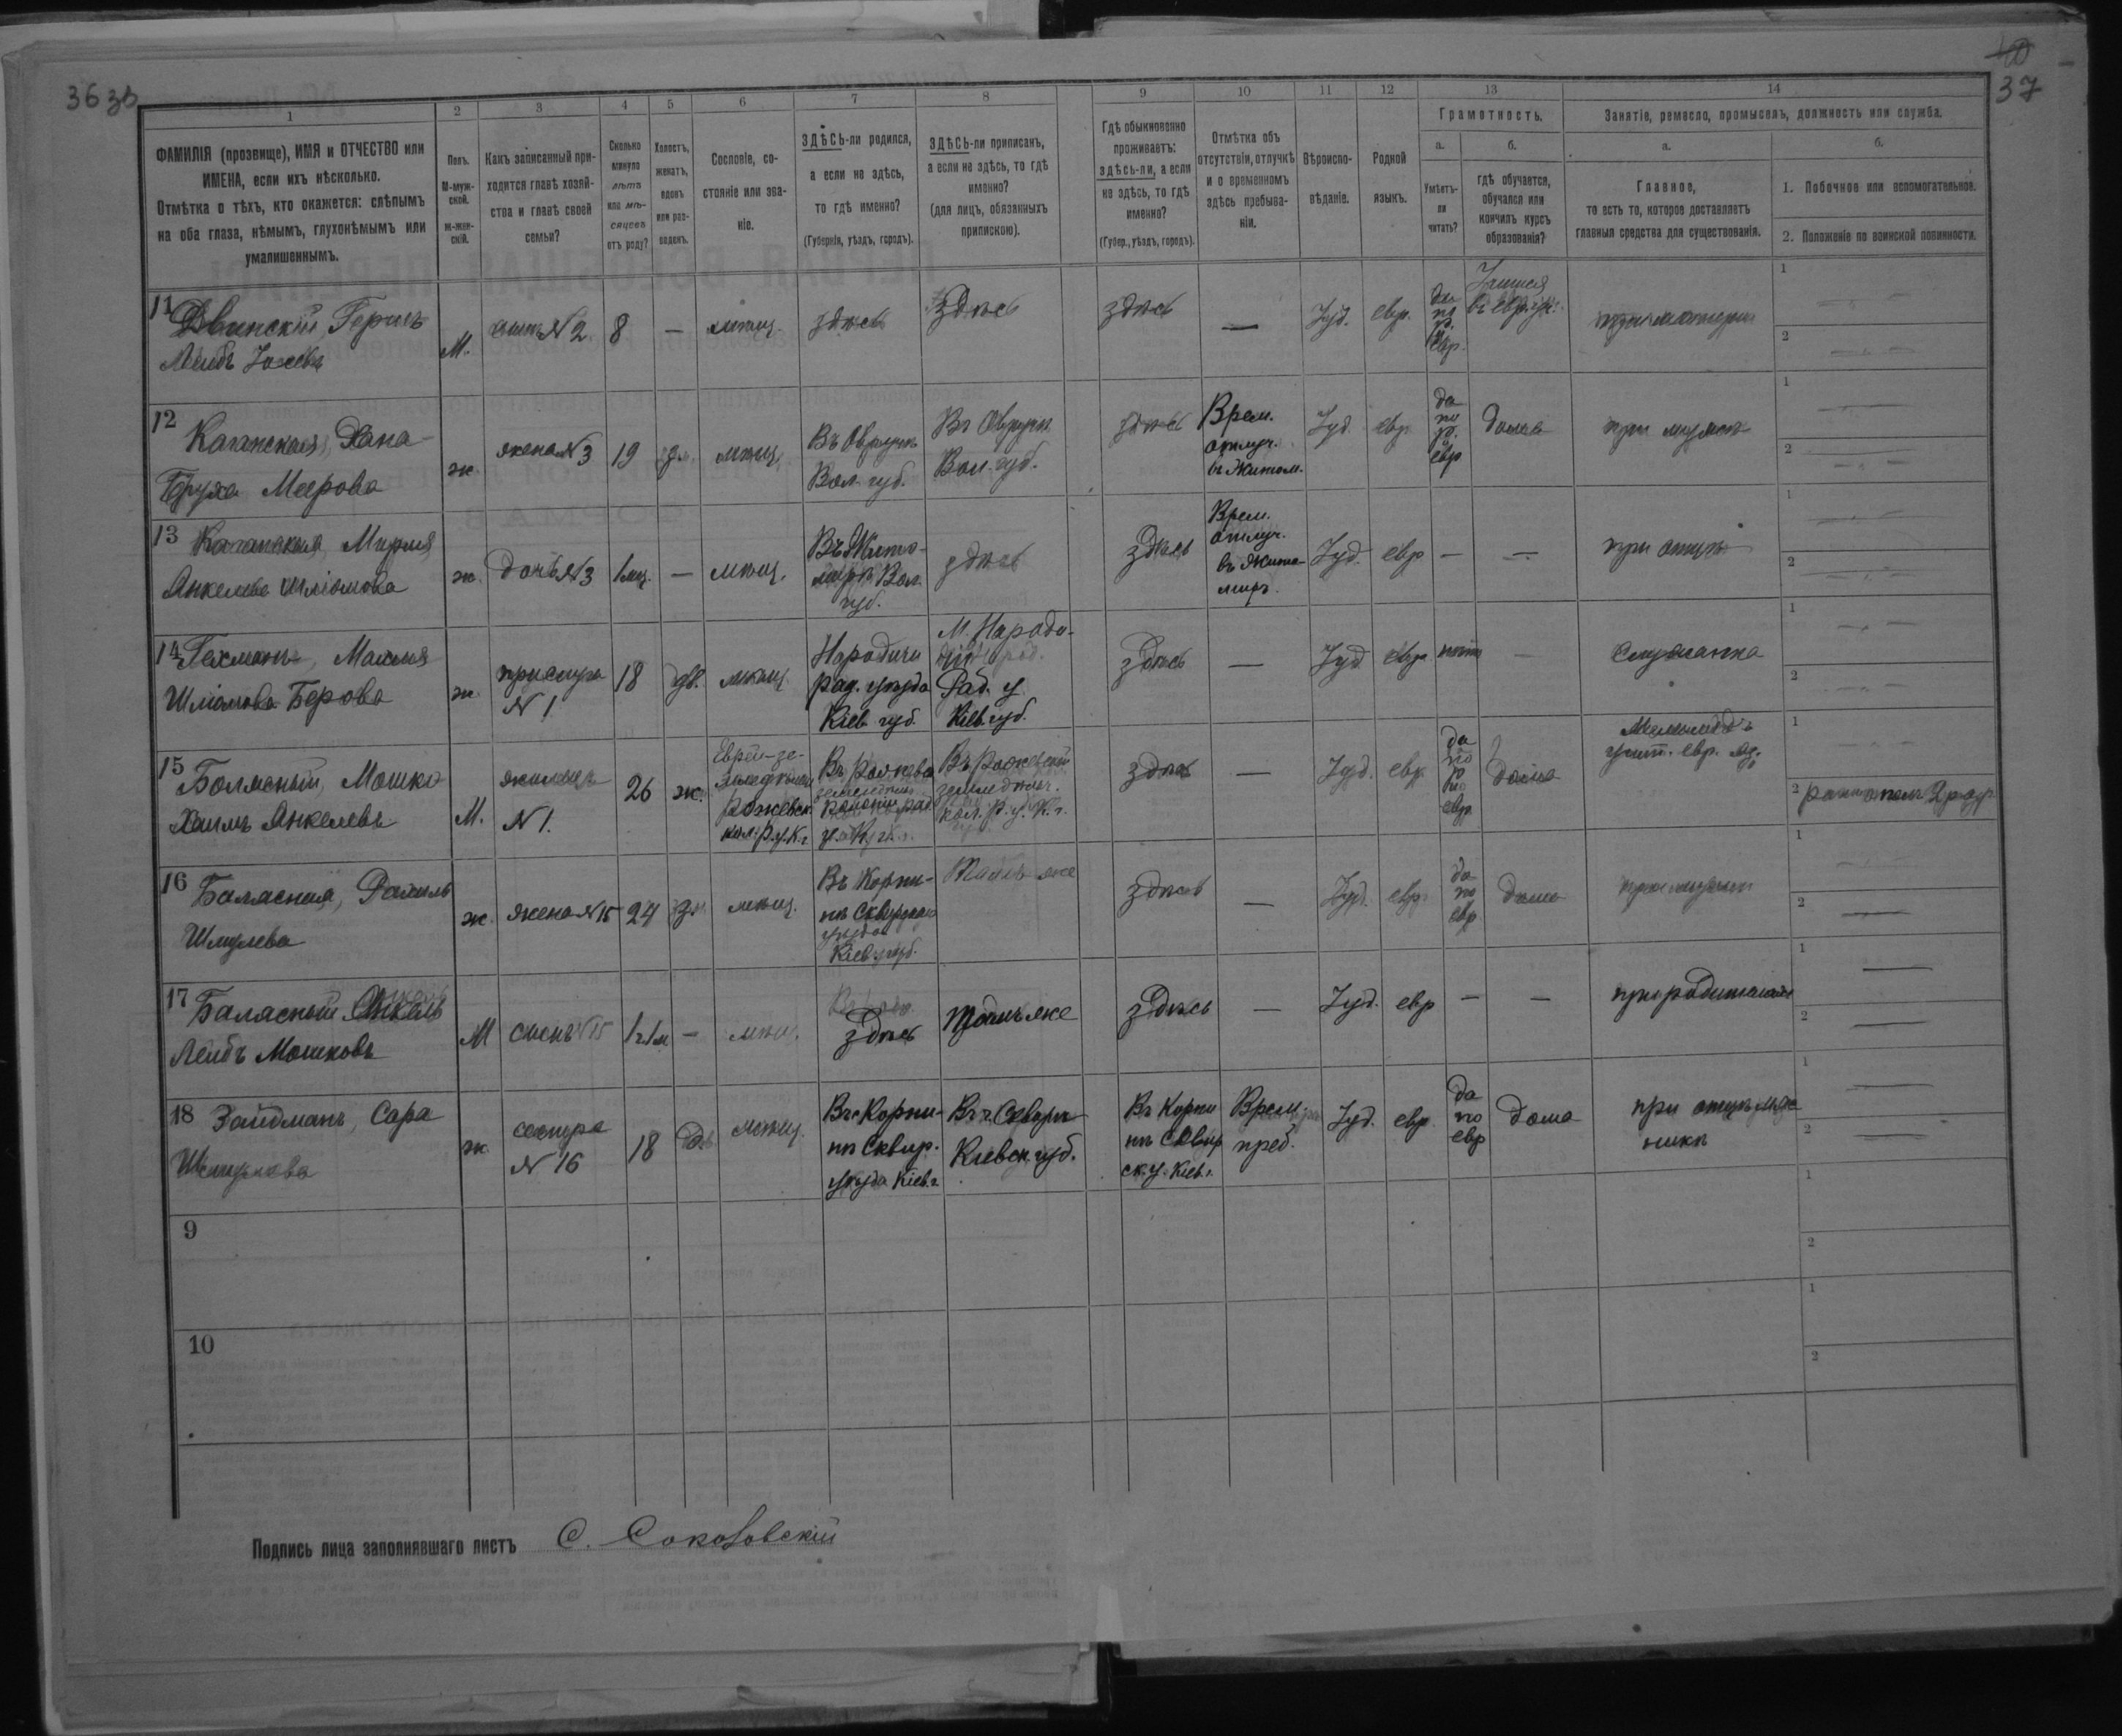 36 зв
40
37
1
2
3
4
5
6
7
8
9
10
11
12
13
14
ФАМИЛІЯ (прозвище), ИМЯ и ОТЧЕСТВО или
ИМЕНА, если ихъ нѣсколько.
Отмѣтка о тѣхъ, кто окажется: слѣпымъ
на оба глаза, нѣмымъ, глухонѣмымъ или
умалишеннымъ.
Полъ.
М-муж-
ской.
Ж-жен-
скій.
Какъ записанный при-
ходится главѣ хозяй-
ства и главѣ своей
семьи?
Сколько
минуло
лѣтъ
или мѣ-
сяцевъ
отъ роду?
Холостъ,
женатъ,
вдовъ
или раз-
веденъ.
Сословіе, со-
стояніе или зва-
ніе.
ЗДѢСЬ-ли родился,
а если не здѣсь,
то гдѣ именно?
(Губернія, уѣздъ, городъ).
ЗДѢСЬ-ли приписанъ,
а если не здѣсь, то гдѣ
именно?
(для лицъ, обязанныхъ
припискою).
Гдѣ обыкновенно
проживаетъ:
здѣсь-ли, а если
не здѣсь, то гдѣ
именно?
(Губер., уѣздъ, городъ).
Отмѣтка объ
отсутствіи, отлучкѣ
и о временномъ
здѣсь пребыва-
ніи.
Вѣроиспо-
вѣданіе.
Родной
языкъ.
Грамотность.
а.
б.
Умѣетъ-
ли
читать?
гдѣ обучается,
обучался или
кончилъ курсъ
образованія?
Занятіе, ремесло, промыселъ, должность или служба.
а.
б.
Главное,
то есть то, которое доставляетъ
главныя средства для существованія.
1. Побочное или вспомогательное.
2. Положеніе по воинской повинности.
11
Двинскій, Гершъ
Лейбъ
М.
сынъ N 2
8
—
мѣщ.
здѣсь
здѣсь
здѣсь
—
Іуд.
евр.
да
по
р.
евр.
въ евр. уч.
при матери
1
2
12
Каганская, Хана
Бруха Меерова
ж.
жена N 3
19
мѣщ.
Въ Овручѣ
Вол. губ.
Въ Овручѣ
Вол. губ.
здѣсь
Врем.
отлуч.
въ Житом.
Іуд.
евр.
да
по
р.
евр
дома
при мужѣ
1
2
13
Каганская, Мирля
Анкелева Шліомова
ж.
дочь N 3
1 мѣ.
—
мѣщ.
Въ Жито-
мирѣ Вол.
губ.
здѣсь
здѣсь
Врем.
отлуч.
въ Жито-
миръ.
Іуд.
евр
—
—
при отцѣ
1
2
14
Гехманъ, Малия
Шліомова Берова
ж.
прислуга
N 1.
18
дв.
мѣщ.
Народичи
рад. уѣзда
Кіев. губ.
М. Народи-
Рад. у.
Кіев. губ.
здѣсь
—
Іуд
евр
нѣтъ
—
служанка
1
2
15
Болясный, Мошко
Хаимъ Анкелевъ
М.
жилецъ
N 1.
26
ж.
Еврей-зе-
рожевск.
кол. Р. у. К. г.
Въ рожевск
у. К. г.
Въ рожевской
земледѣльч.
кол. Р. у. К. г.
здѣсь
—
Іуд.
евр.
да
по
р
по
евр
дома
Меламедъ
учит. евр. яз.
1
2 ратникъ опол. 2 разр
16
Баласная, Рахиль
Шмулева
ж.
жена N 15
24
мѣщ.
Въ Корни-
нѣ Сквирскаго
уѣзда
Кіев. губ.
Тамъ же
здѣсь
—
Іуд.
евр.
да
по
евр
дома
при мужѣ
1
2
17
Баласный Анкель
Лейбъ Мошковъ
М
сынъ N 15
1 г. 1 м
—
мѣщ.
здѣсь
Тамъ же
здѣсь
—
Іуд.
евр
—
—
при родителяхъ
1
2
18
Зайдманъ, Сара
Шмулева
ж
сестра
N 16
18
Дв.
мѣщ.
Въ Корни-
нѣ Сквир.
уѣзда Кіев. г.
Въ г. Сквирѣ
Кіевск. губ.
Въ Корни
нѣ Сквир
ск. у. Кіев. г.
Врем.
преб.
Іуд.
евр.
да
по
евр
дома
при отцѣ мяс
никѣ
1
2
9
1
2
10
1
2
Подпись лица заполнявшаго листъ С. Соколовскій